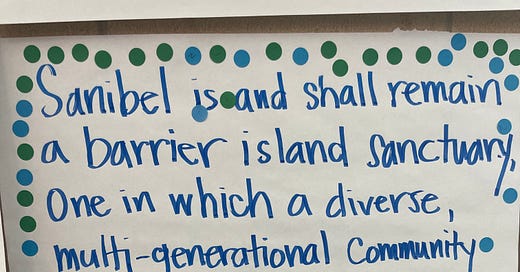 Sanibel is and shall remain
a barrier island sanctuary,
One in which a diverse,
multi-generational community